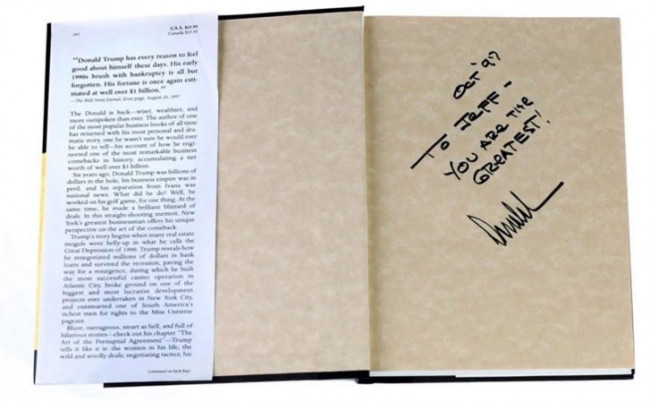 U.S.A. $25.95
"Donald Trump has every reason to feel
good about himself these days. His early
1990s brush with bankruptcy is all but
forgotten. His fortune is once again esti-
mated at well over $1 billion."
—The Wall Street Journal, front page, August 20, 1997
The Donald is back—wiser, wealthier, and
more outspoken than ever. The author of one
of the most popular business books of all time
has returned with his most personal and dra-
matic story, one he wasn't sure he would ever
be able to tell—his account of how he engi-
neered one of the most remarkable business
comebacks in history, accumulating a net
worth of well over $3 billion.
Six years ago, Donald Trump was billions of
dollars in the hole, his business empire was in
peril, and his separation from Ivana was
national news. What did he do? Well, he
worked on his golf game, for one thing. At the
same time, he made a brilliant blizzard of
deals. In this straight-shooting memoir, New
York's greatest businessman offers his unique
perspective on the art of the comeback.
Trump's story begins when many real estate
moguls went belly-up in what he calls the
Great Depression of 1990. Trump reveals how
he renegotiated millions of dollars in bank
loans and survived the recession, paving the
way for a resurgence, during which he built
the most successful casino operation in
Atlantic City, broke ground on one of the
biggest and most lucrative development
projects ever undertaken in New York City,
and outsmarted one of South America's
richest men for rights to the Miss Universe
pageant.
Blunt, outrageous, smart as hell, and full of
hilarious stories—check out his chapter "The
Art of the Prenuptial Agreement"—Trump
tells it like it is: the women in his life, the
wild and woolly deals, negotiating tactics, his
(continued on back flap)
OCT '97
TO JEFF -
YOU ARE THE
GREATEST!